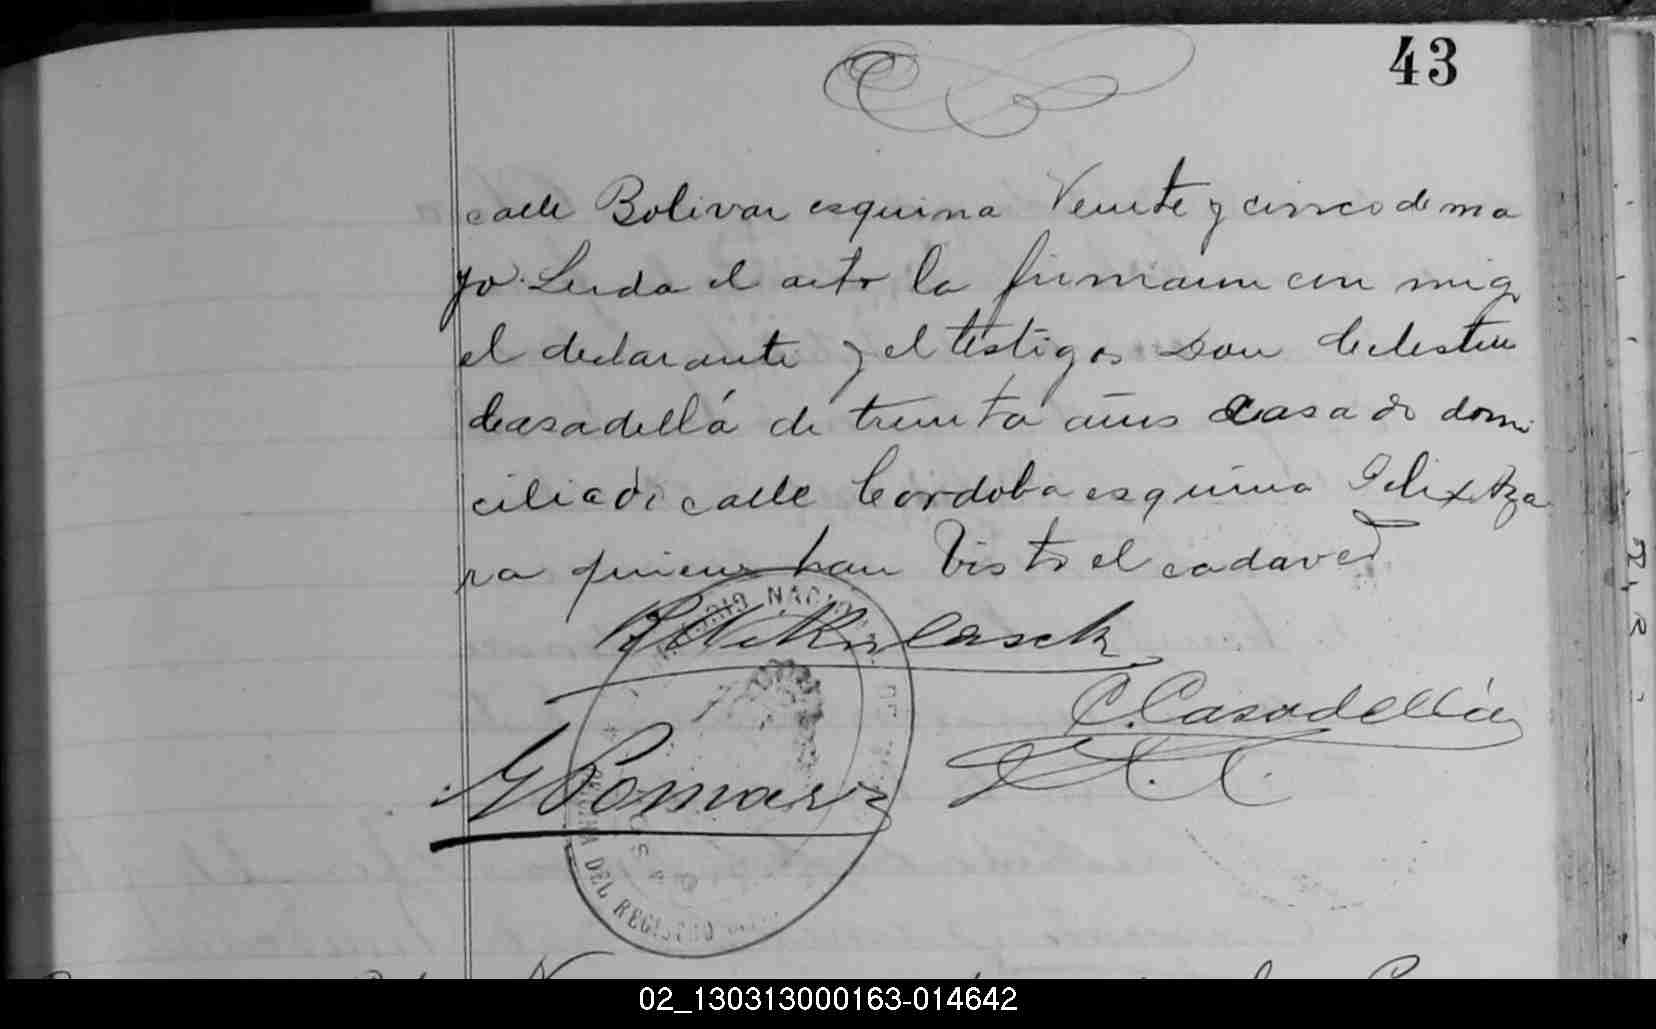 43
calle Bolivar esquina Veinte y cinco de ma
yo. Leida el acta la firmaron con migo
el declarante y el testigos Don Celestino
Casadellá de treinta años Casado domi
ciliado calle Cordoba esquina Felix Aza
ra quienes han visto el cadaver
C. Casadellá
G Pomar
DEL REGISTRO
02_130313000163-014642